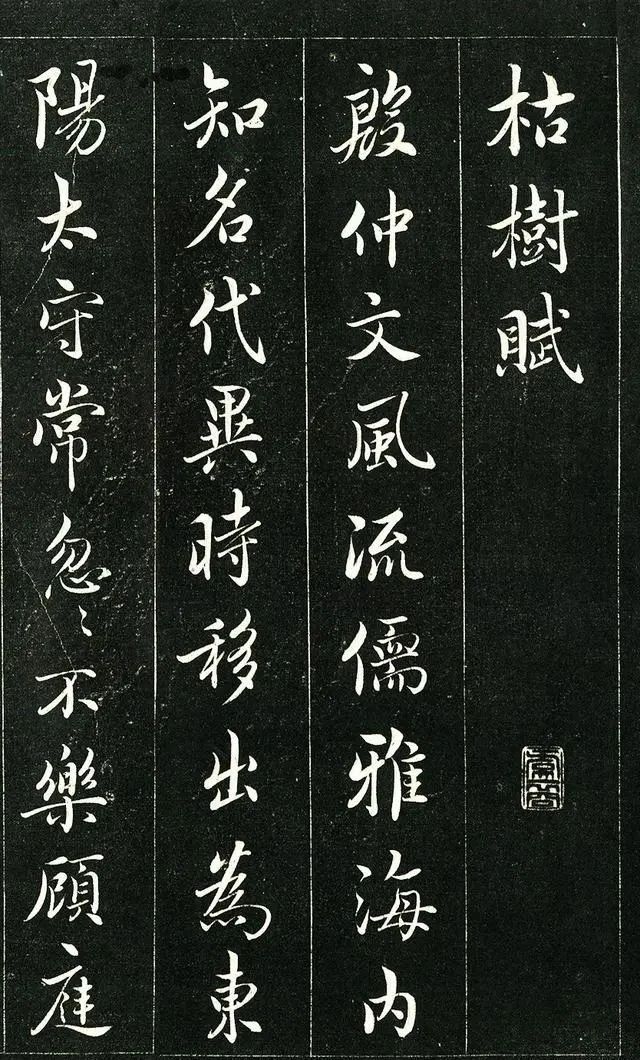 枯樹賦
殷仲文風流儒雅海内
知名代異時移出為東
陽太守常忽〻不樂顧庭